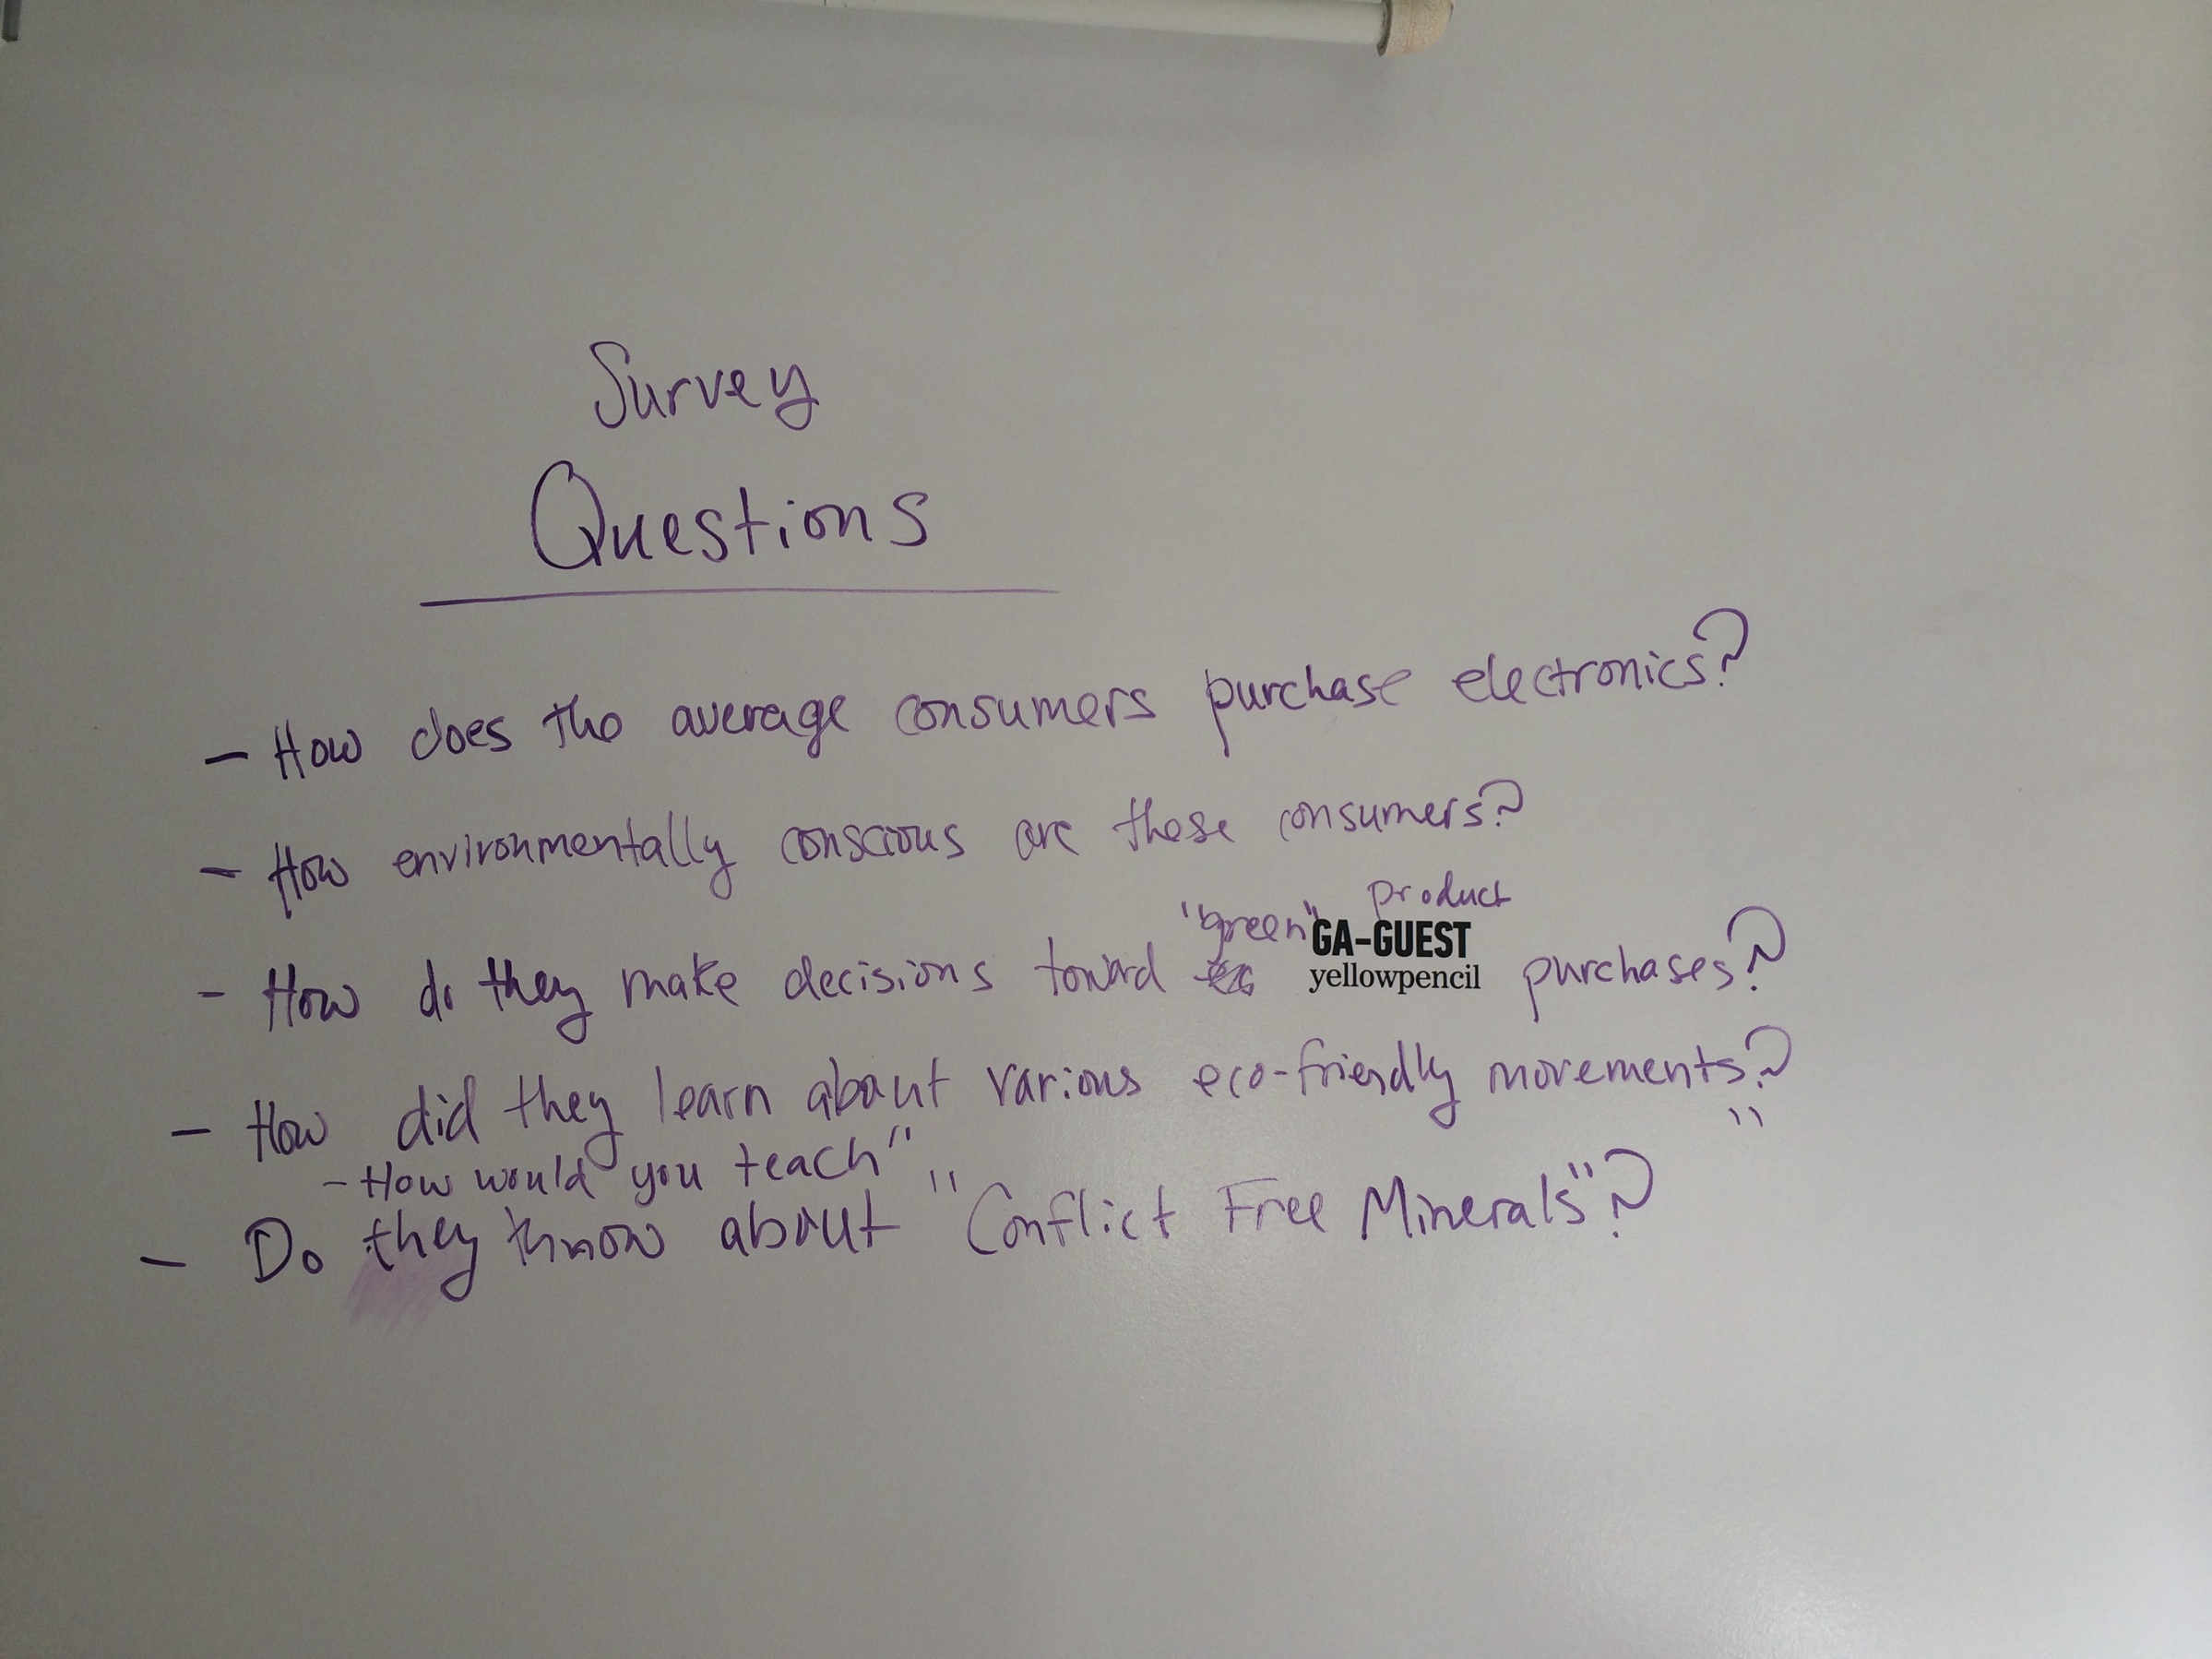 Survey
Questions
- How does the average consumers purchase electronics?
- How environmentally conscious are these consumers?
"green" product
- How do they make decisions toward GA-GUEST purchases?
yellowpencil
- How did they learn about various eco-friendly movements?
- How would you teach" "
- Do they know about "Conflict Free Minerals"?